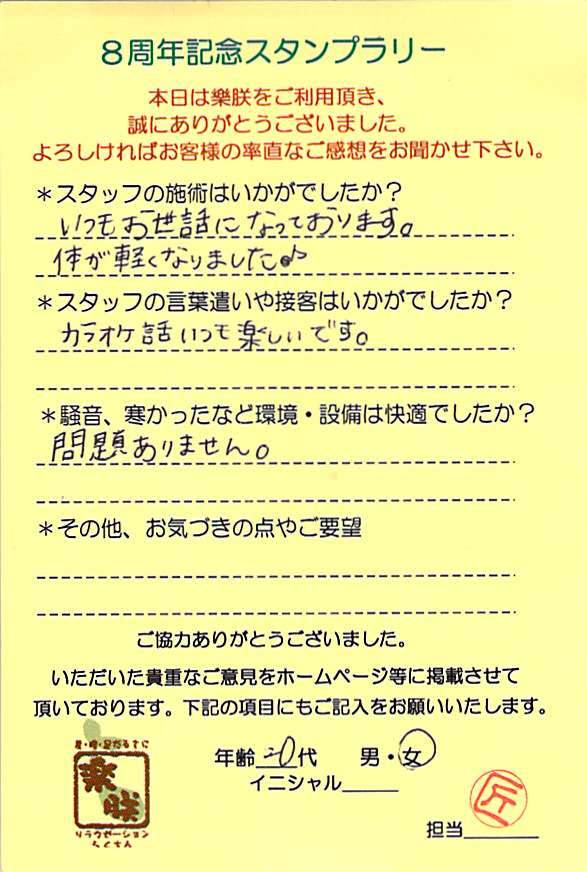 8周年記念スタンプラリー
本日は樂朕をご利用頂き、
誠にありがとうございました。
よろしければお客様の率直なご感想をお聞かせ下さい。
＊スタッフの施術はいかがでしたか？
いつもお世話になっております。
体が軽くなりました♪
＊スタッフの言葉遣いや接客はいかがでしたか？
カラオケ話いつも楽しいです。
＊騒音、寒かったなど環境・設備は快適でしたか？
問題ありません。
＊その他、お気づきの点やご要望
ご協力ありがとうございました。
いただいた貴重なご意見をホームページ等に掲載させて
頂いております。下記の項目にもご記入をお願いいたします。
足・腰・足だるさに
樂朕
リラクゼーション
らくちん
年齢 代 男・女
イニシャル
匠
担当